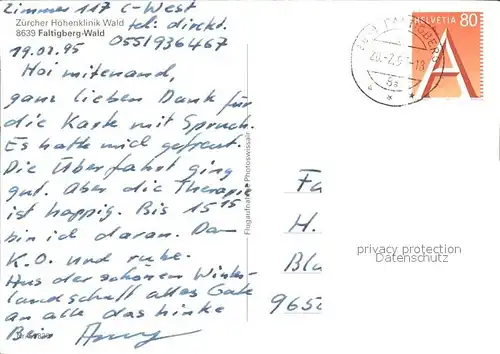 Zimmer 117 C-West
Zürcher Höhenklinik Wald
8639 Faltigberg-Wald
tel: direkt.
19.02.95 055/936467
Hoi mitenand,
ganz lieben Dank für
die Karte mit Spruch.
Es hatte mich gefreut.
Die Überfahrt ging
gut. Aber die Therapie
ist happig. Bis 15 15
bin ich daran. Dan
K.O. und ruhe.
Aus der schönen Winter-
landschaft alles Gute
an alle das hinke
Bein
Flugaufnahme Photoswissair
FALTIGBERG
HELVETIA 80
A
Fa
H.
Bla
9652
privacy protection
Datenschutz